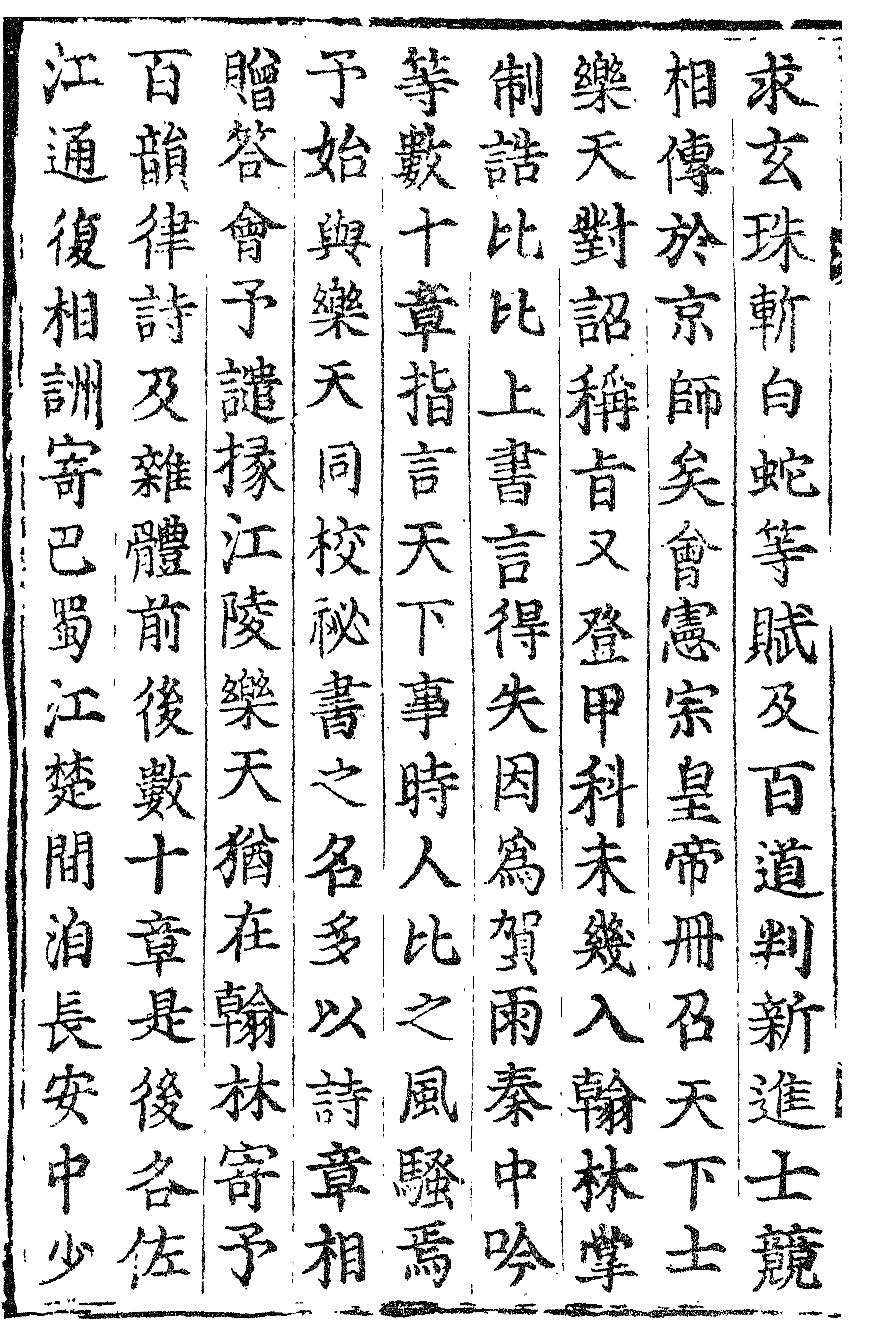 求玄珠斬白蛇等賦及百道判新進士競
相傳於京師矣會憲宗皇帝冊召天下士
樂天對詔稱旨又登甲科未幾入翰林掌
制誥比比上書言得失因為賀雨秦中吟
等數十章指言天下事時人比之風騷焉
予始與樂天同校祕書之名多以詩章相
贈答會予譴掾江陵樂天猶在翰林寄予
百韻律詩及雜體前後數十章是後各佐
江通復相詶寄巴蜀江楚間洎長安中少